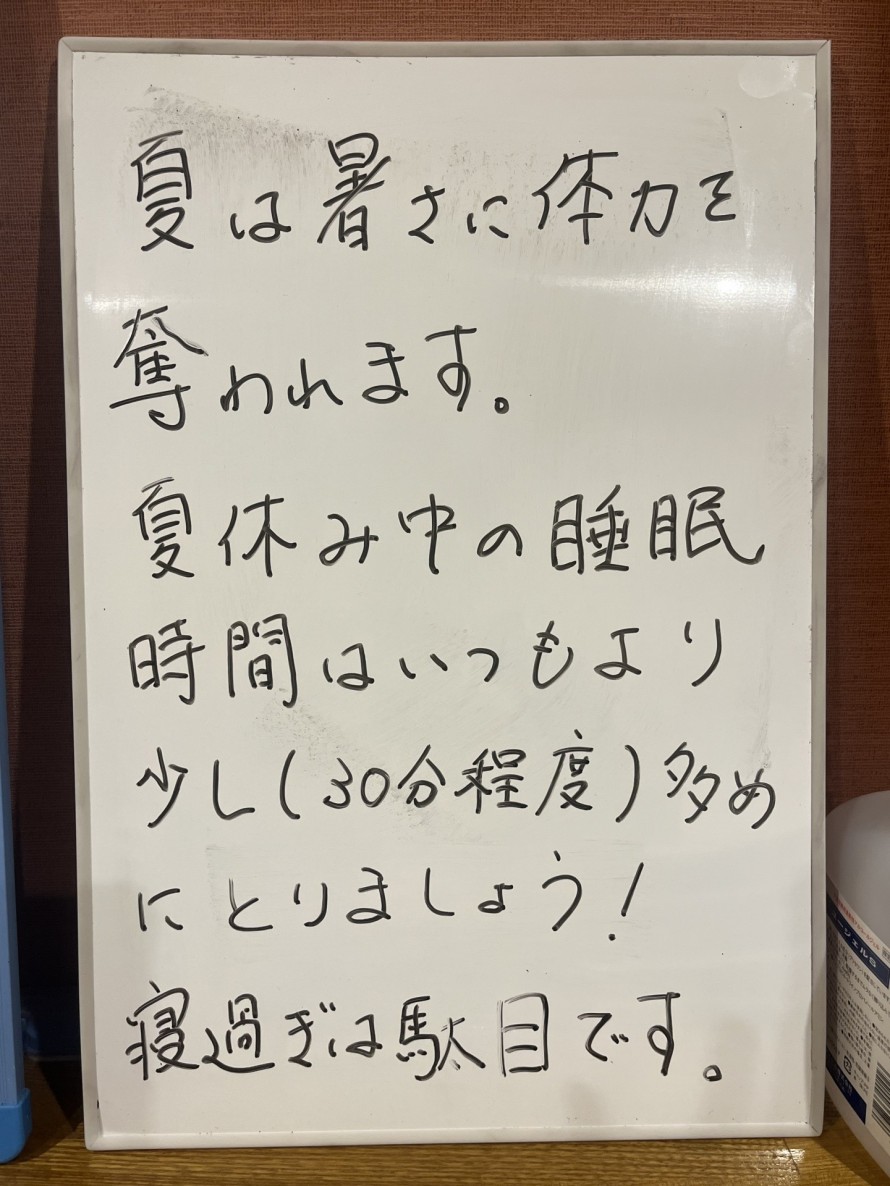 夏は暑さに体力を
奪われます。
夏休み中の睡眠
時間はいつもより
少し(30分程度)多め
にとりましょう!
寝過ぎは駄目です。